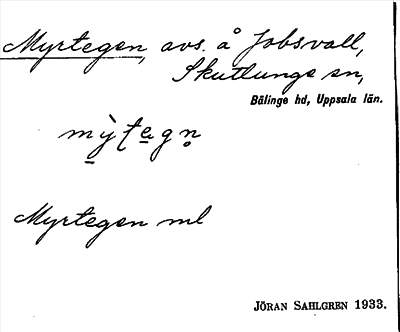 Myrtegen, avs. å Jobsvall,
Skutlunge sn,
Bälinge hd, Uppsala län.
Myrtegen ml
JÖRAN SAHLGREN 1933.